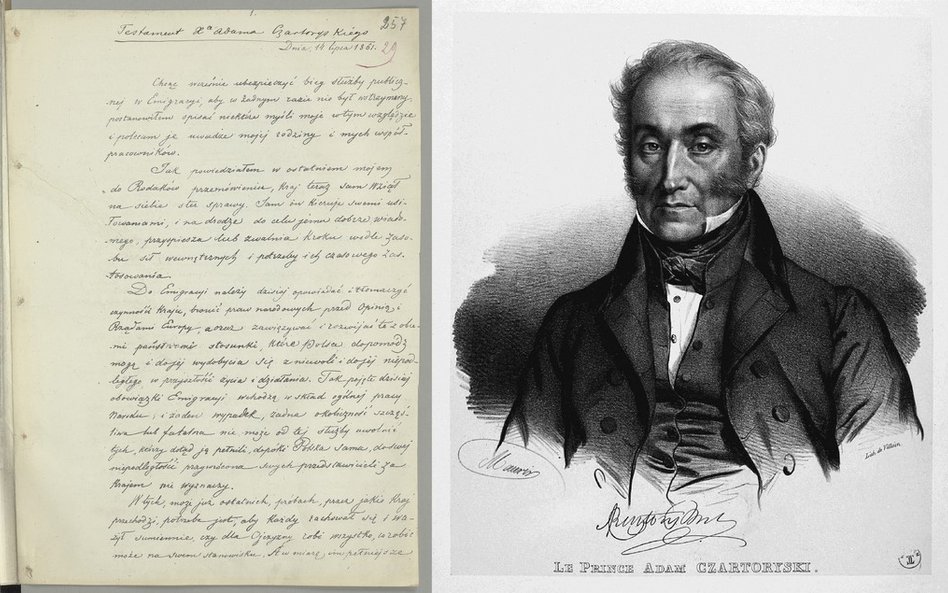 1.
257
Testament Xa Adama Czartoryskiego
29
Dnia, 14 lipca 1861.
Chcąc wcześnie ubezpieczyć bieg służby publicz-
nej w Emigracyi, aby w żadnym razie nie był wstrzymany,
postanowiłem spisać niektóre myśli moje w tym względzie
i polecam je uwadze mojej rodziny i mych współ-
pracowników.
Jak powiedziałem w ostatniem mojem
do Rodaków przemówieniu, Kraj teraz sam wziął
na siebie ster sprawy. Sam on kieruje swemi usi-
łowaniami, i na drodze do celu jemu dobrze wiado-
mego, przyspiesza lub zwalnia kroku wedle zaso-
bu sił wewnętrznych i potrzeby ich czasowego zas-
tosowania.
Do Emigracyi należy dzisiaj opowiadać i tłomaczyć
czynność Kraju, bronić praw narodowych przed Opinią i
Rządami Europy, a oraz zawiązywać i rozwijać te z obce-
mi państwami stosunki które Polsce dopomódz
mogą i do jej wydobycia się z niewoli i do jej niepod-
ległego, w przyszłości życia i działania. Tak pojęte dzisiaj
obowiązki Emigracyi wchodzą w skład ogólnej pracy
Narodu, i żaden wypadek, żadna okoliczność szczęś-
liwa lub fatalna nie może od tej służby uwolnić
tych, którzy dotąd ją pełnili dopóki Polska sama, do swej
niepodległości przywrócona swych przedstawicieli za
Krajem nie wyznaczy.
W tych, może już ostatnich, próbach, przez jakie Kraj
przechodzi, potrzeba jest, aby każdy rachował się i wa-
żył sumiennie, czy dla Ojczyzny robi wszystko, co robić
może na swem stanowisku. A w miarę, im pełniejsze
Maurin
Lith. de Villain
LE PRINCE ADAM CZARTORYSKI.